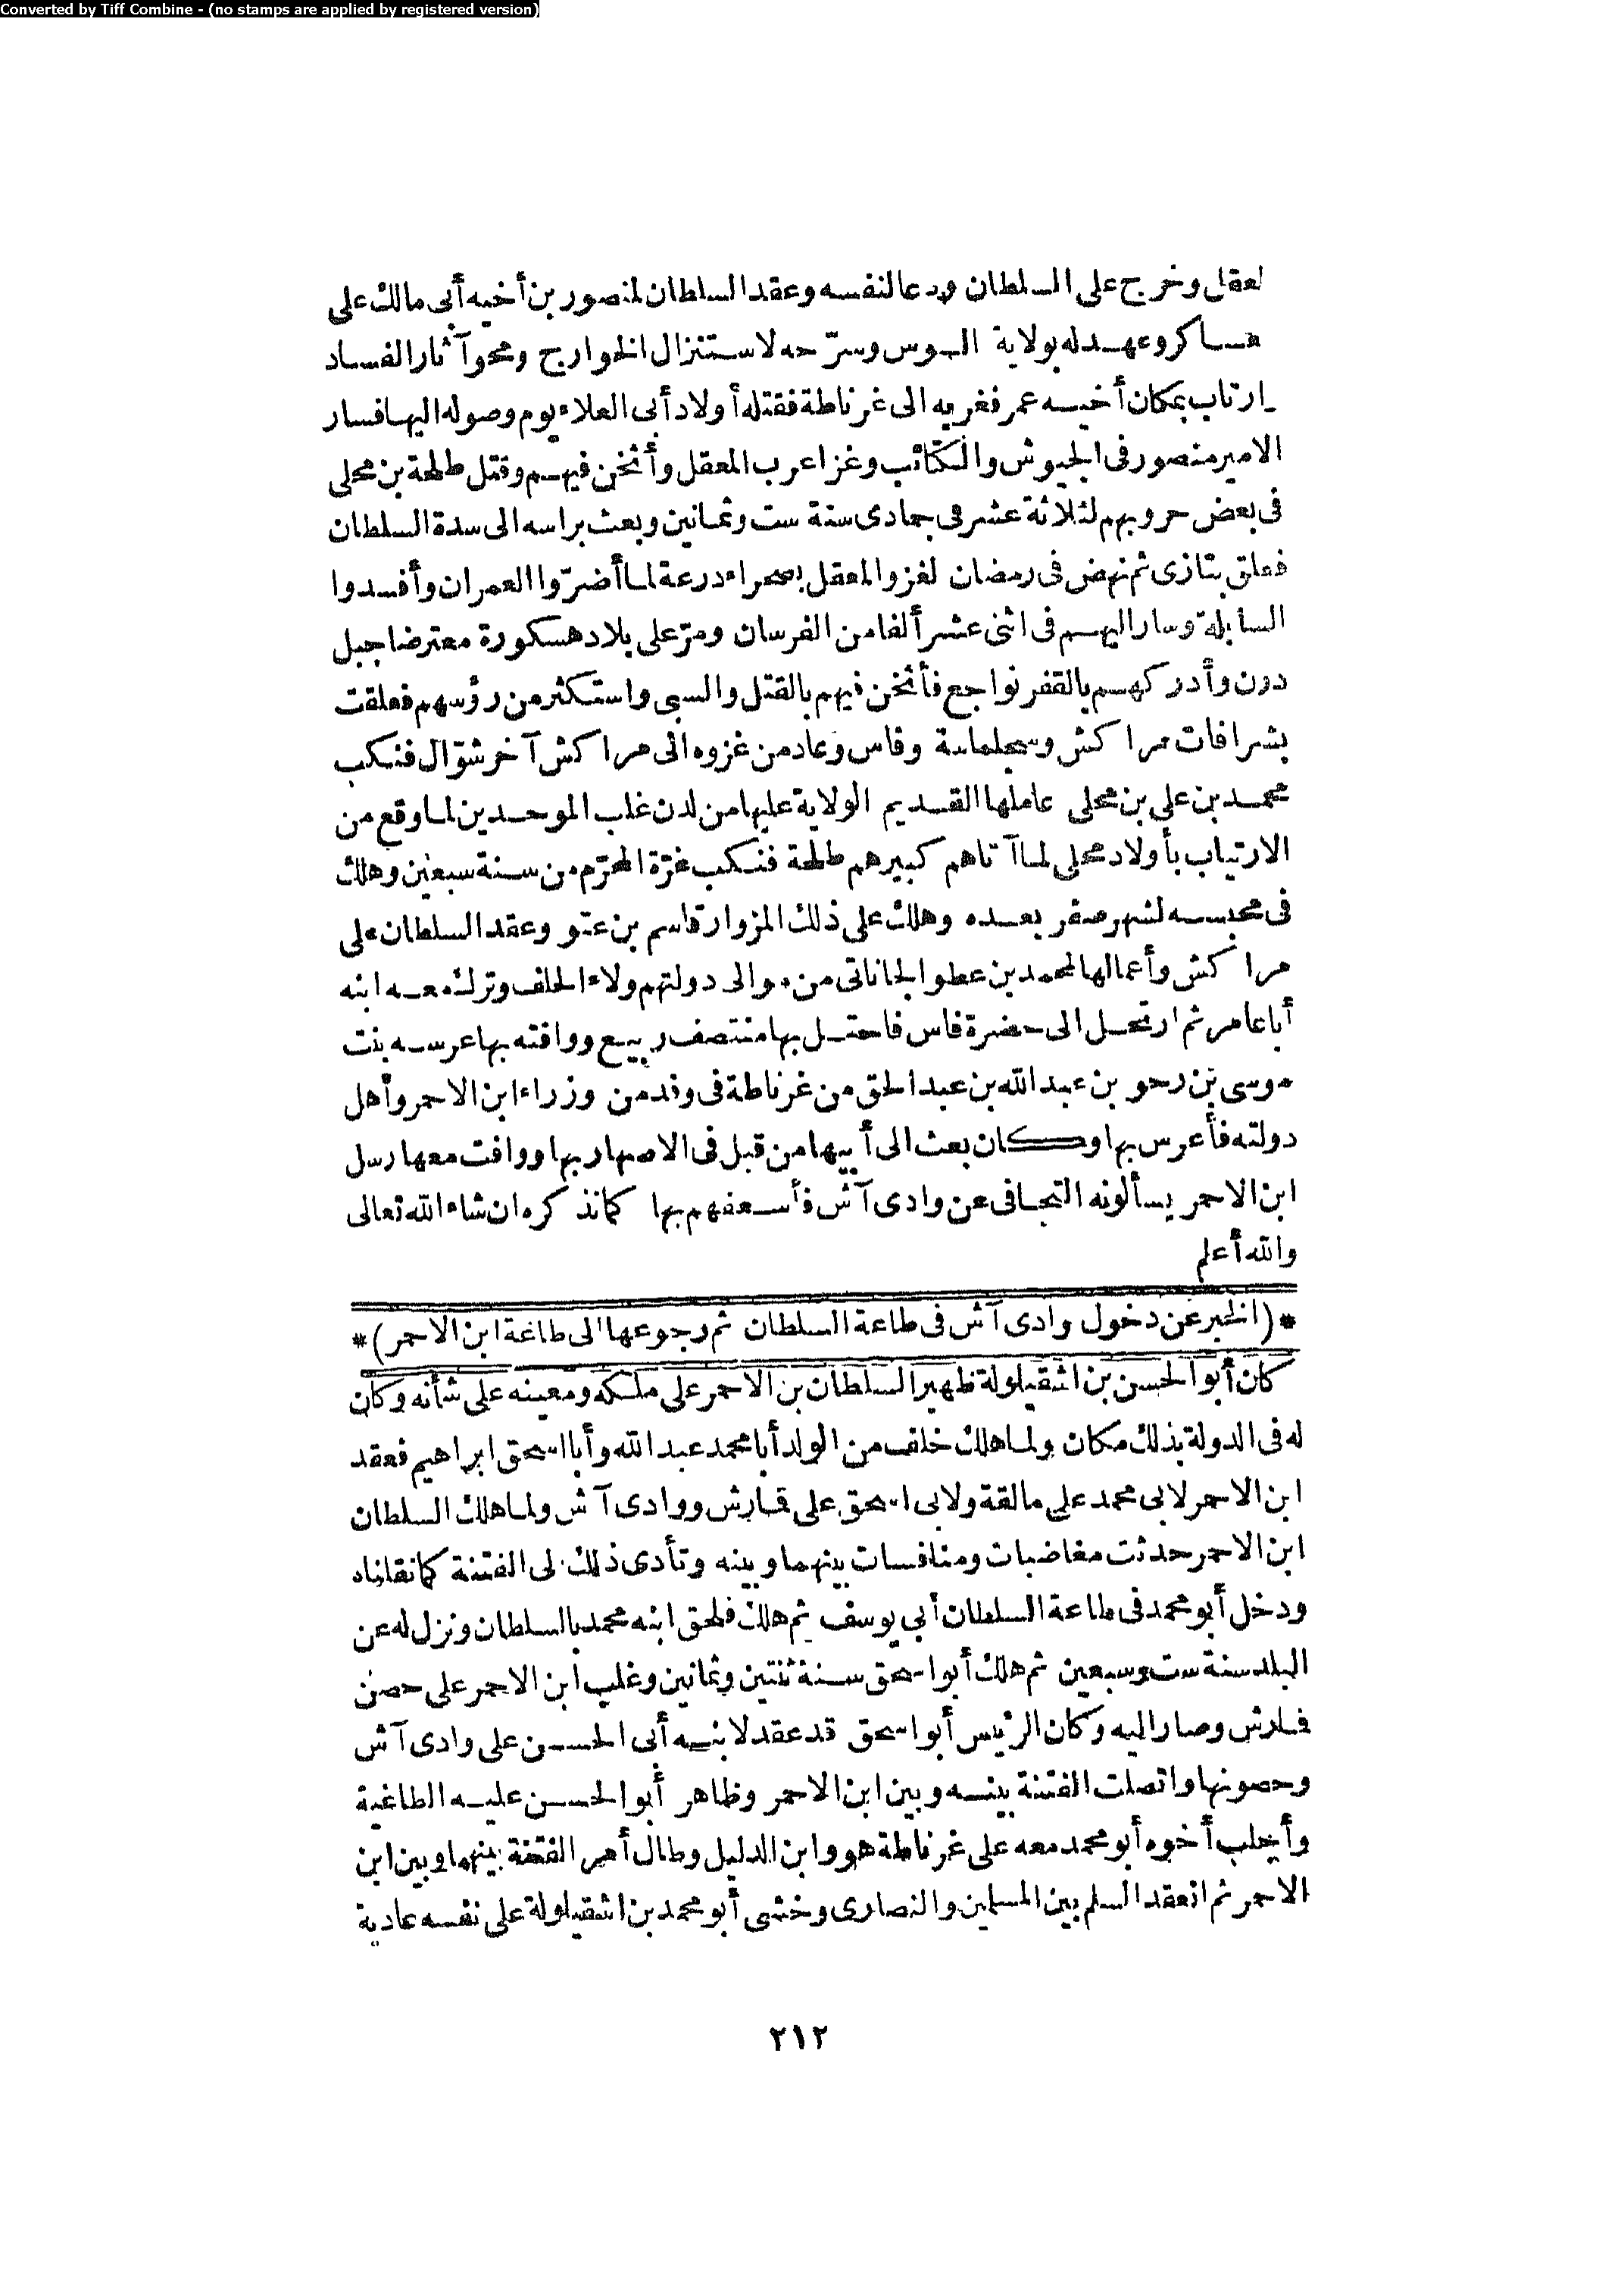 Converted by Tiff Combine - (no stamps are applied by registered version)
لعقل وخرج على السلطان ودعا لنفسه وعقد السلطان لمنصور بن أخيه أبى مالك على
عساكر وعهد له بولاية السوس وسرّحه لاستنزال الخوارج ومحو آثار الفساد
ارتاب بمكان أخيه عمر فغربه الى غرناطة فقتله أولاد أبى العلاء يوم وصوله اليها فسار
الامير منصور فى الجيوش والكتائب وغزا عرب المعقل وأثخن فيهم وقتل طلحة بن محلى
فى بعض حروبهم لثلاثة عشر فى جمادى سنة ست وثمانين وبعث براسه الى سدة السلطان
فعلق بتازى ثم نهض فى رمضان لغزو المعقل بصحراء درعة لما أضرّوا العمران وأفسدوا
السابلة وسار اليهم فى اثنى عشر ألفا من الفرسان ومرّ على بلاد هسكورة معترضا جبل
درن وأدركهم بالقفر نواجع فأثخن فيهم بالقتل والسبى واستكثر من رؤسهم فعلقت
بشرافات مراكش وسجلماسة وفاس وعاد من غزوه الى مراكش آخر شوّال فنكب
محمد بن على بن محلى عاملها القديم الولاية عليها من لدن غلب الموحدين لما وقع من
الارتياب بأولاد محلى لما آتاهم كبيرهم طلحة فنكب غرّة المحرّم من سنة سبعين وهلك
فى محبسه لشهر صفر بعده وهلك على ذلك المزوار قاسم بن عتو وعقد السلطان على
مراكش وأعمالها لمحمد بن عطو الجاناتى من موالى دولتهم ولاء الحلف وترك معه ابنه
أبا عامر ثم ارتحل الى حضرة فاس فاحتل بها منتصف ربيع ووافته بها عرسه بنت
موسى بن رحو بن عبد الله بن عبد الحق من غرناطة فى وفد من وزراء ابن الاحمر وأهل
دولته فأعرس بها وكان بعث الى أبيها من قبل فى الاصهار بها ووافت معها رسل
ابن الاحمر يسألونه التجافى عن وادى آش فأسعفهم بها كما نذكره ان شاء الله تعالى
والله أعلم
* (الخبر عن دخول وادى آش فى طاعة السلطان ثم رجوعها الى طاغة ابن الاحمر) *
كان أبو الحسن بن اشقيلولة ظهير السلطان بن الاحمر على ملكه ومعينه على شأنه وكان
له فى الدولة بذلك مكان ولما هلك خلف من الولد أبا محمد عبد الله وأبا اسحق ابراهيم فعقد
ابن الاحمر لابى محمد على مالقة ولابى اسحق على قمارش ووادى آش ولما هلك السلطان
ابن الاحمر حدثت مغاضبات ومنافسات بينهما وبينه وتأدى ذلك الى الفتنة كما نقلناه
ودخل أبو محمد فى طاعة السلطان أبى يوسف ثم هلك فلحق ابنه محمد بالسلطان ونزل له عن
البلد سنة ست وسبعين ثم هلك أبو اسحق سنة ثنتين وثمانين وغلب ابن الاحمر على حصن
قمارش وصار اليه وكان الرئيس أبو اسحق قد عقد لابنه أبى الحسن على وادى آش
وحصونها واتصلت الفتنة بينه وبين ابن الاحمر وظاهر أبو الحسن عليه الطاغية
وأجلب أخوه أبو محمد معه على غرناطة هو وابن الدليل وطال أمر الفتنة بينهما وبين ابن
الاحمر ثم انعقد السلم بين المسلمين والنصارى وخشى أبو محمد بن اشقيلولة على نفسه عادية
٢١٢